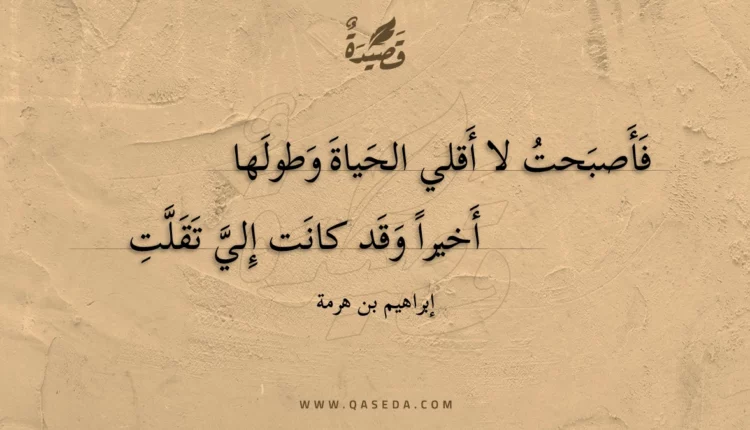 قَصِيدَةٌ
فَأَصبَحتُ لا أَقلي الحَياةَ وَطولَها
أَخيراً وَقَد كانَت إِليَّ تَقَلَّتِ
إبراهيم بن هرمة
WWW.QASEDA.COM